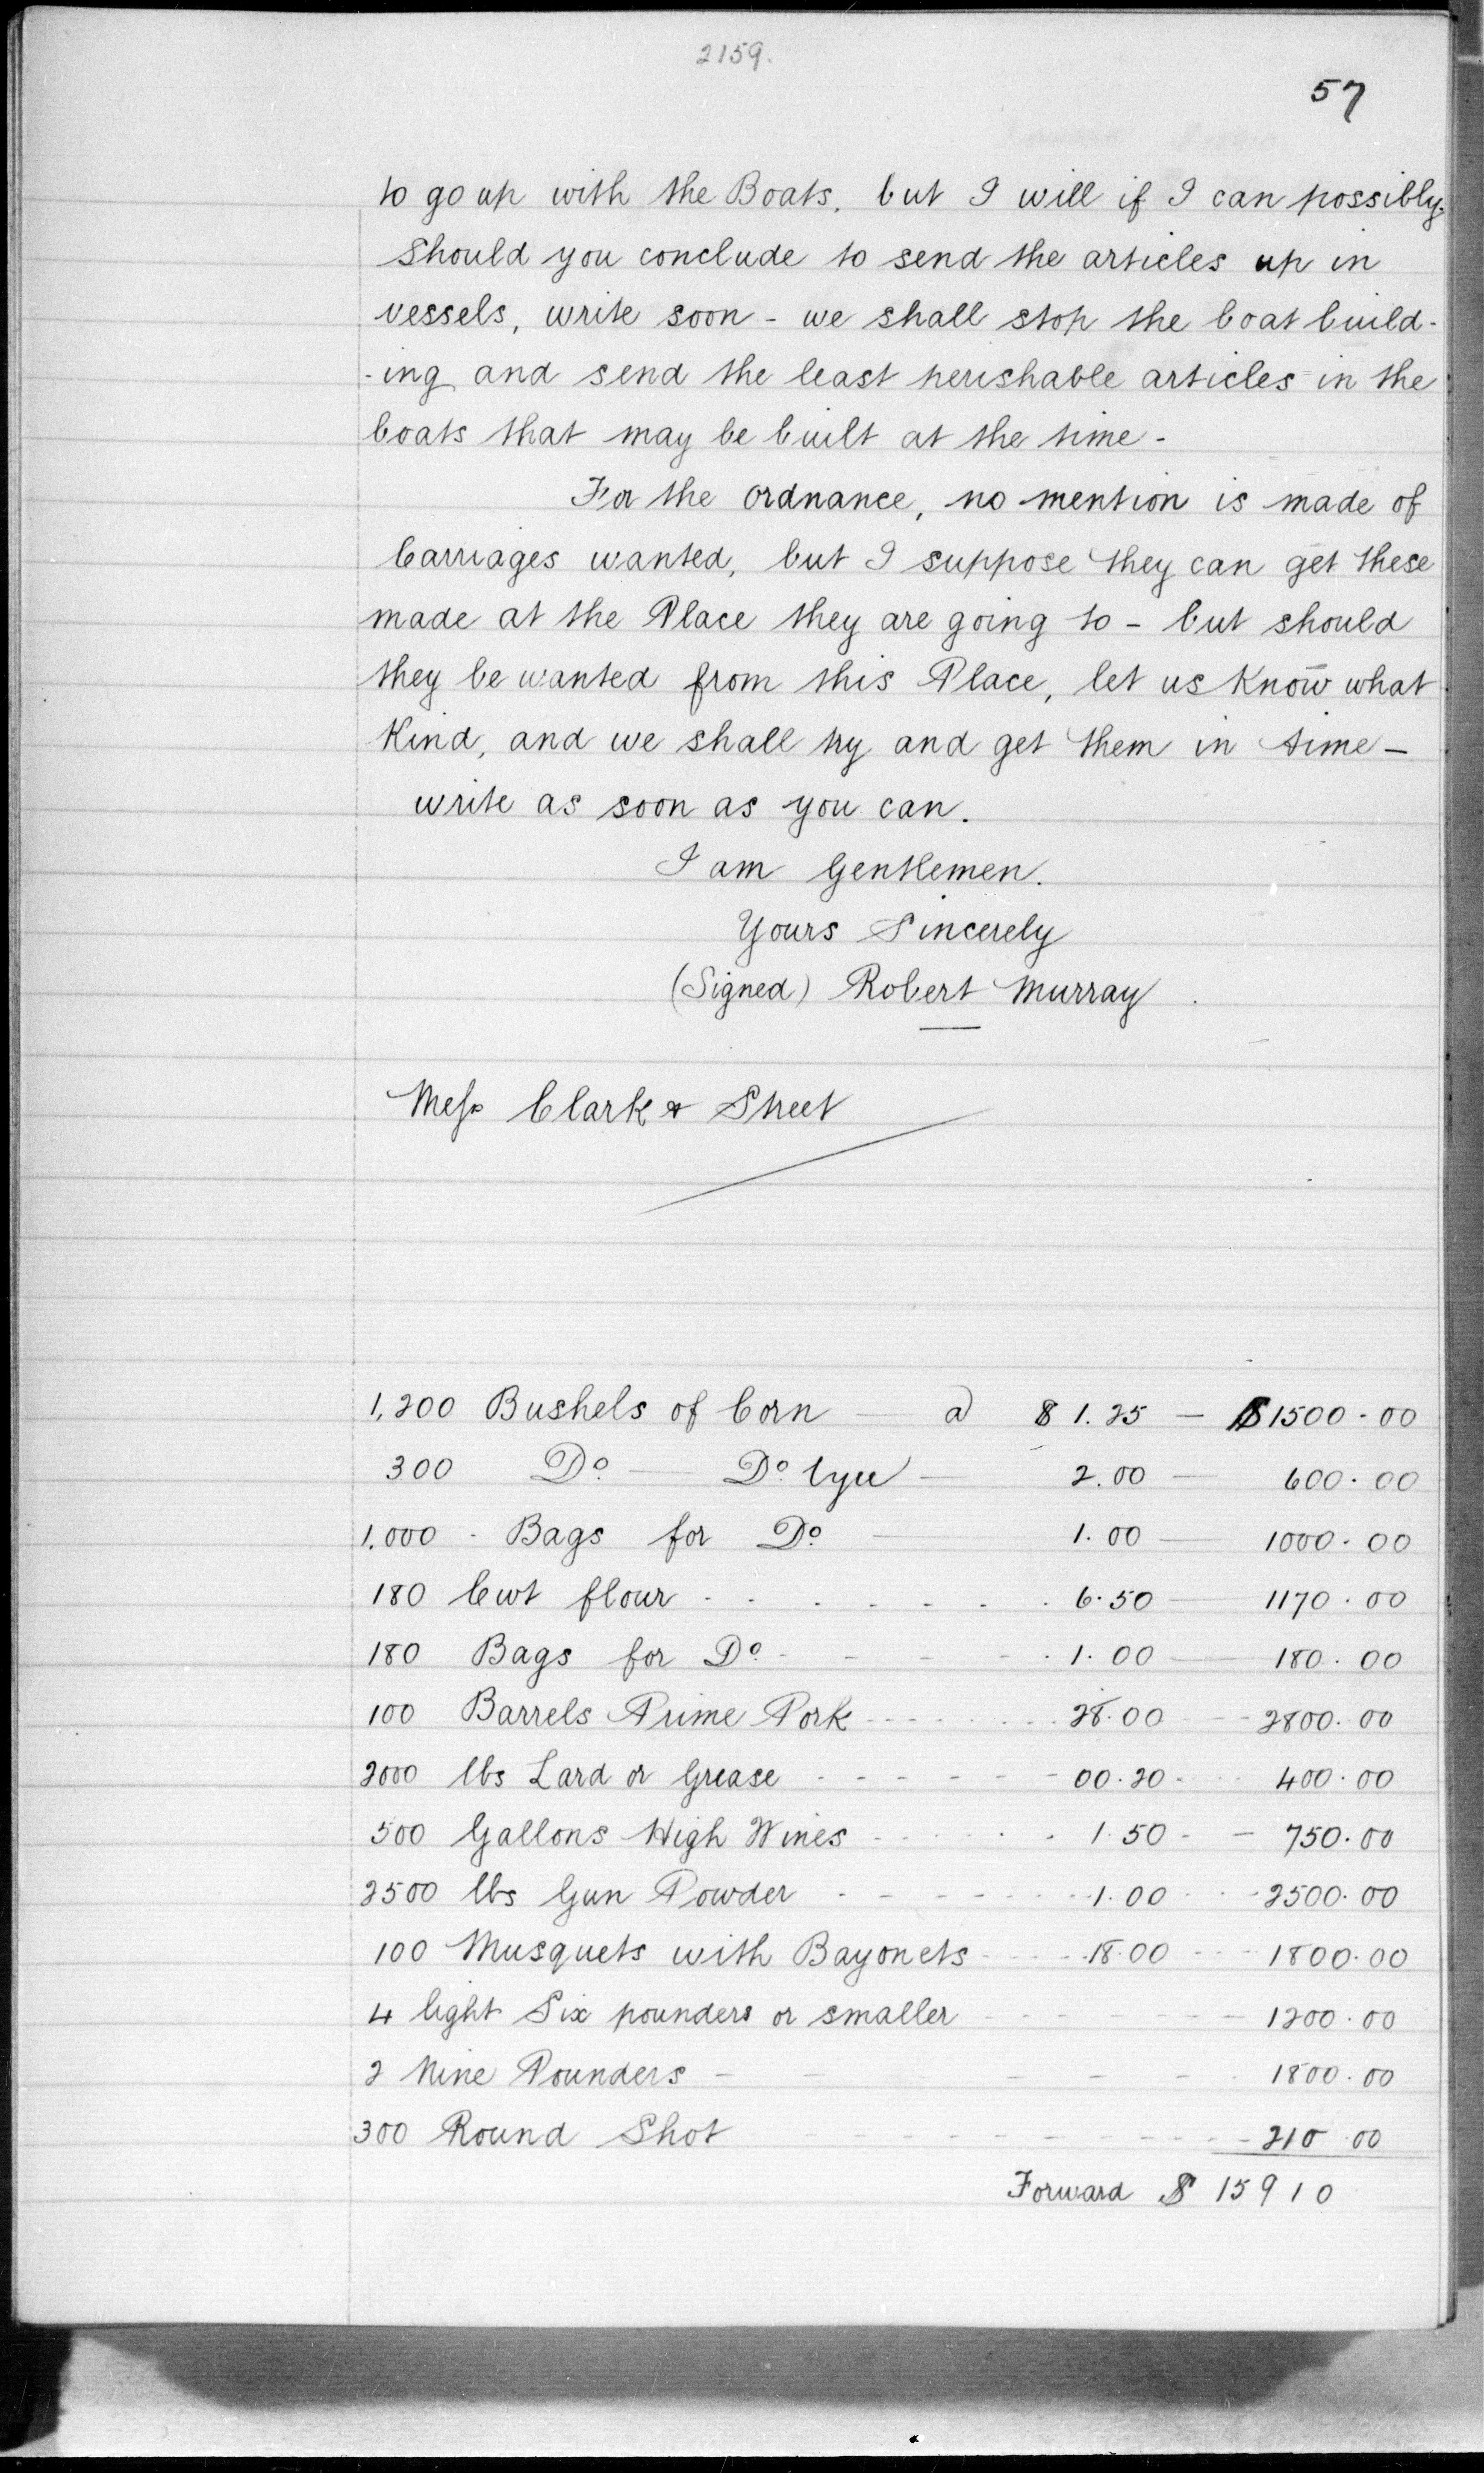 2159.
57
to go up with the Boats, but I will if I can possibly.
Should you conclude to send the articles up in
vessels, write soon - we shall stop the boat build-
-ing and send the least perishable articles in the
boats that may be built at the time -
For the ordnance, no mention is made of
Carriages wanted, but I suppose they can get these
made at the Place they are going to - but should
they be wanted from this Place, let us Know what
Kind, and we shall try and get them in time -
write as soon as you can.
I am Gentlemen.
Yours Sincerely
(Signed) Robert Murray.
Messrs Clark & Street
1,200 Bushels of Corn — a $ 1.25 — $1500.00
300 Do — Do Lyed — 2.00 — 600.00
1,000 - Bags for Do — 1.00 — 1000.00
180 Cwt flour - - - - - - - 6.50 — 1170.00
180 Bags for Do - - - - - 1.00 — 180.00
100 Barrels Prime Pork - - - - - - - 28.00 - - 2800.00
2000 lbs Lard or Grease - - - - - - 00.20 - - 400.00
500 Gallons High Wines - - - - - - 1.50 - - 750.00
2500 lbs Gun Powder - - - - - - - 1.00 - - - 2500.00
100 Musquets with Bayonets - - - - 18.00 - - - 1800.00
4 light Six pounders or smaller - - - - - - 1200.00
2 Nine Pounders - - - - - - 1800.00
300 Round Shot - - - - - - - - 210 00
Forward $ 15910